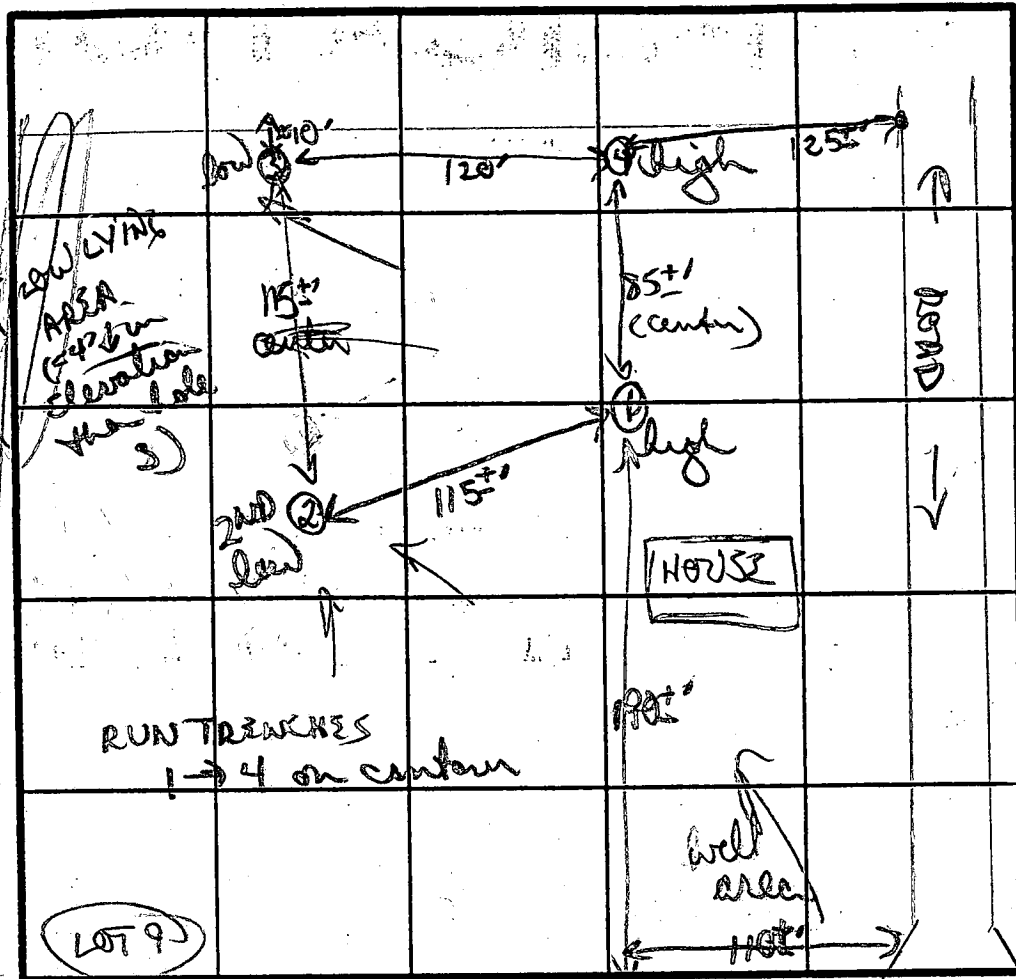 ±10'
low ③
120'
④ high
125±'
LOW LYING
AREA
elevation
than hole
3)
115±'
center
85±'
(center)
ROAD
① high
115±'
2ND ②
low
HOUSE
190±'
RUN TRENCHES
1→4 on contour
well
area
LOT 9
110±'